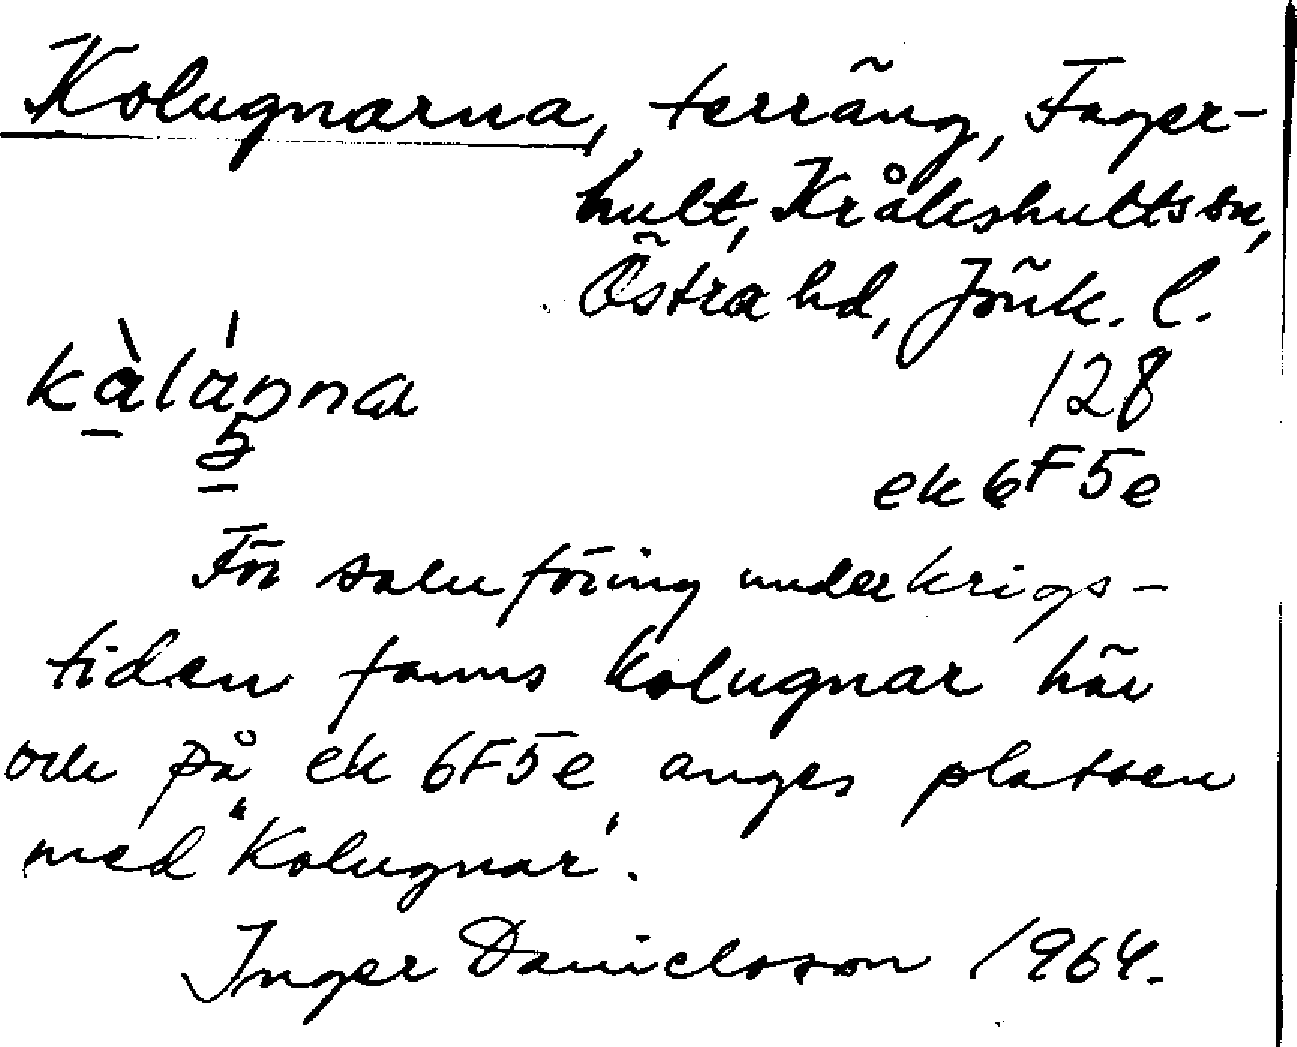 Kolugnarna, terräng, Fager-
hult, Kråkshults sn,
Östra hd, Jönk. l.
128
ek 6F5e
För saluföring under krigs-
tiden fanns kolugnar här
och på ek 6F5e anges platsen
med "Kolugnar".
Inger Danielsson 1964.